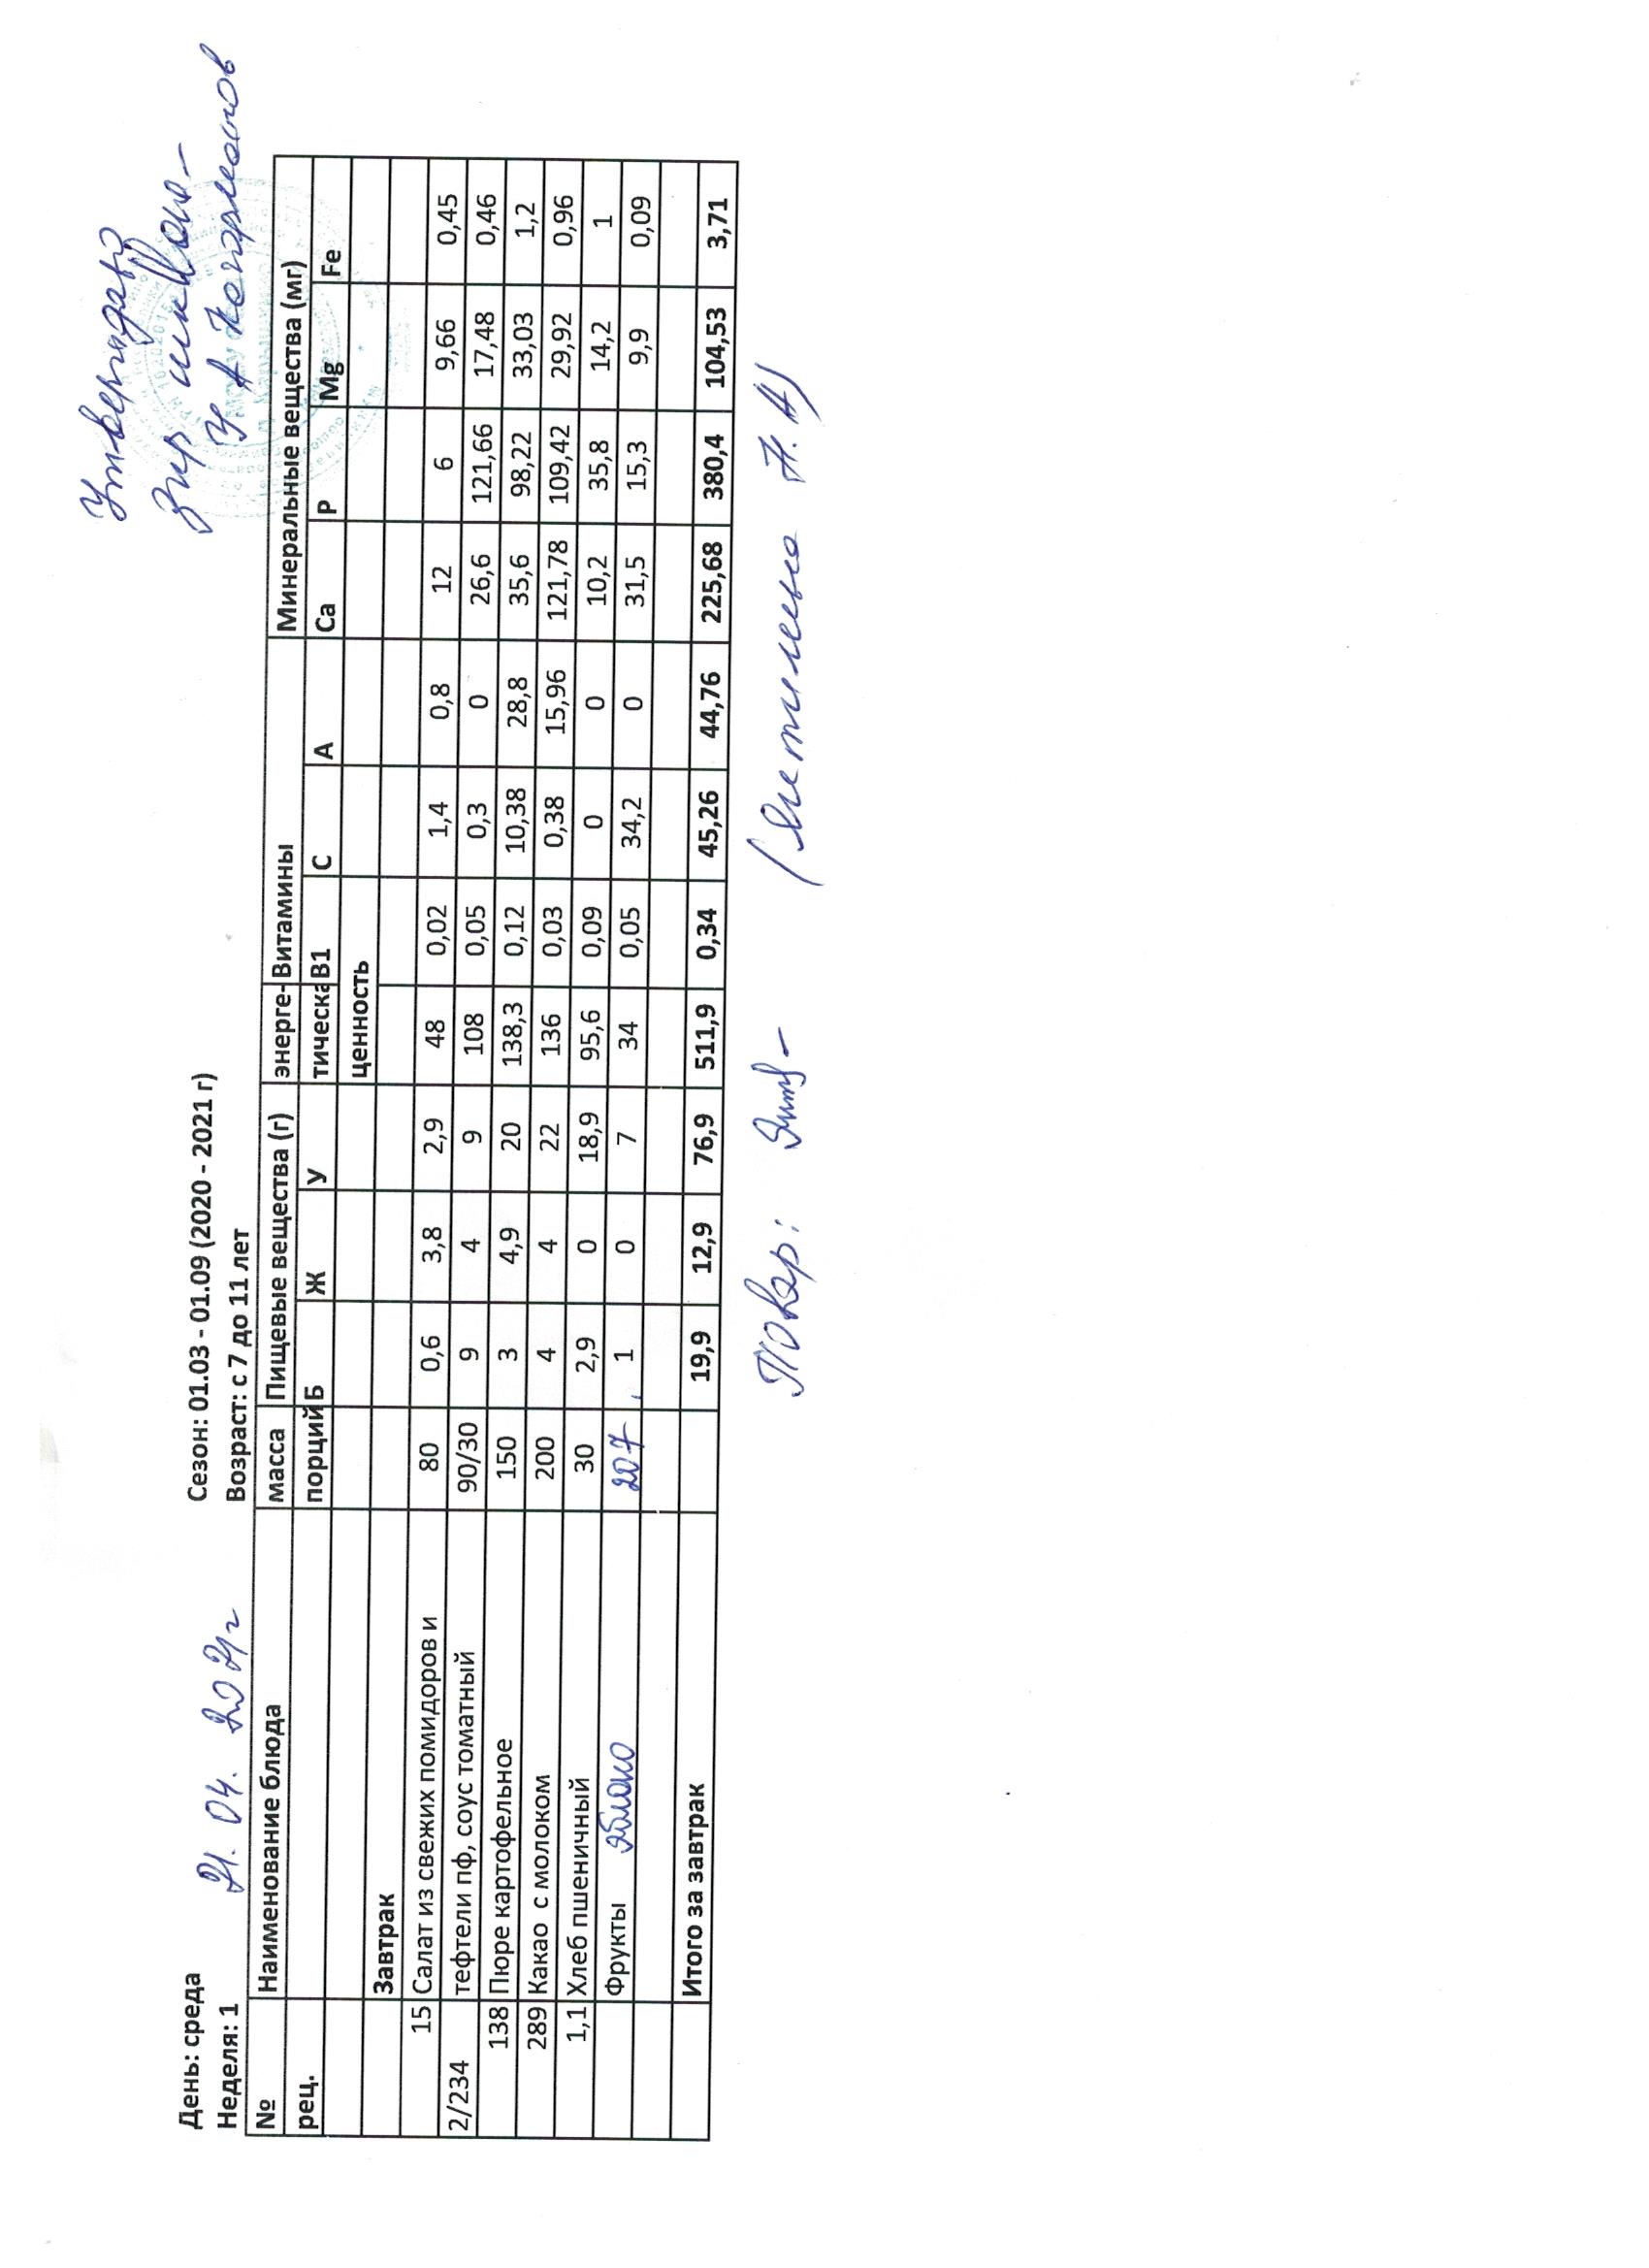 Утверждаю
Дир школы
День: среда Сезон: 01.03 - 01.09 (2020 - 2021 г)
Неделя: 1 21.04.2021г Возраст: с 7 до 11 лет
№ Наименование блюда масса Пищевые вещества (г) энерге- Витамины Минеральные вещества (мг)
рец. порций Б Ж У тическа В1 С А Са Р Mg Fe
ценность
Завтрак
15 Салат из свежих помидоров и 80 0,6 3,8 2,9 48 0,02 1,4 0,8 12 6 9,66 0,45
2/234 тефтели пф, соус томатный 90/30 9 4 9 108 0,05 0,3 0 26,6 121,66 17,48 0,46
138 Пюре картофельное 150 3 4,9 20 138,3 0,12 10,38 28,8 35,6 98,22 33,03 1,2
289 Какао с молоком 200 4 4 22 136 0,03 0,38 15,96 121,78 109,42 29,92 0,96
1,1 Хлеб пшеничный 30 2,9 0 18,9 95,6 0,09 0 0 10,2 35,8 14,2 1
Фрукты яблоко 207 1 0 7 34 0,05 34,2 0 31,5 15,3 9,9 0,09
Итого за завтрак 19,9 12,9 76,9 511,9 0,34 45,26 44,76 225,68 380,4 104,53 3,71
Повар: